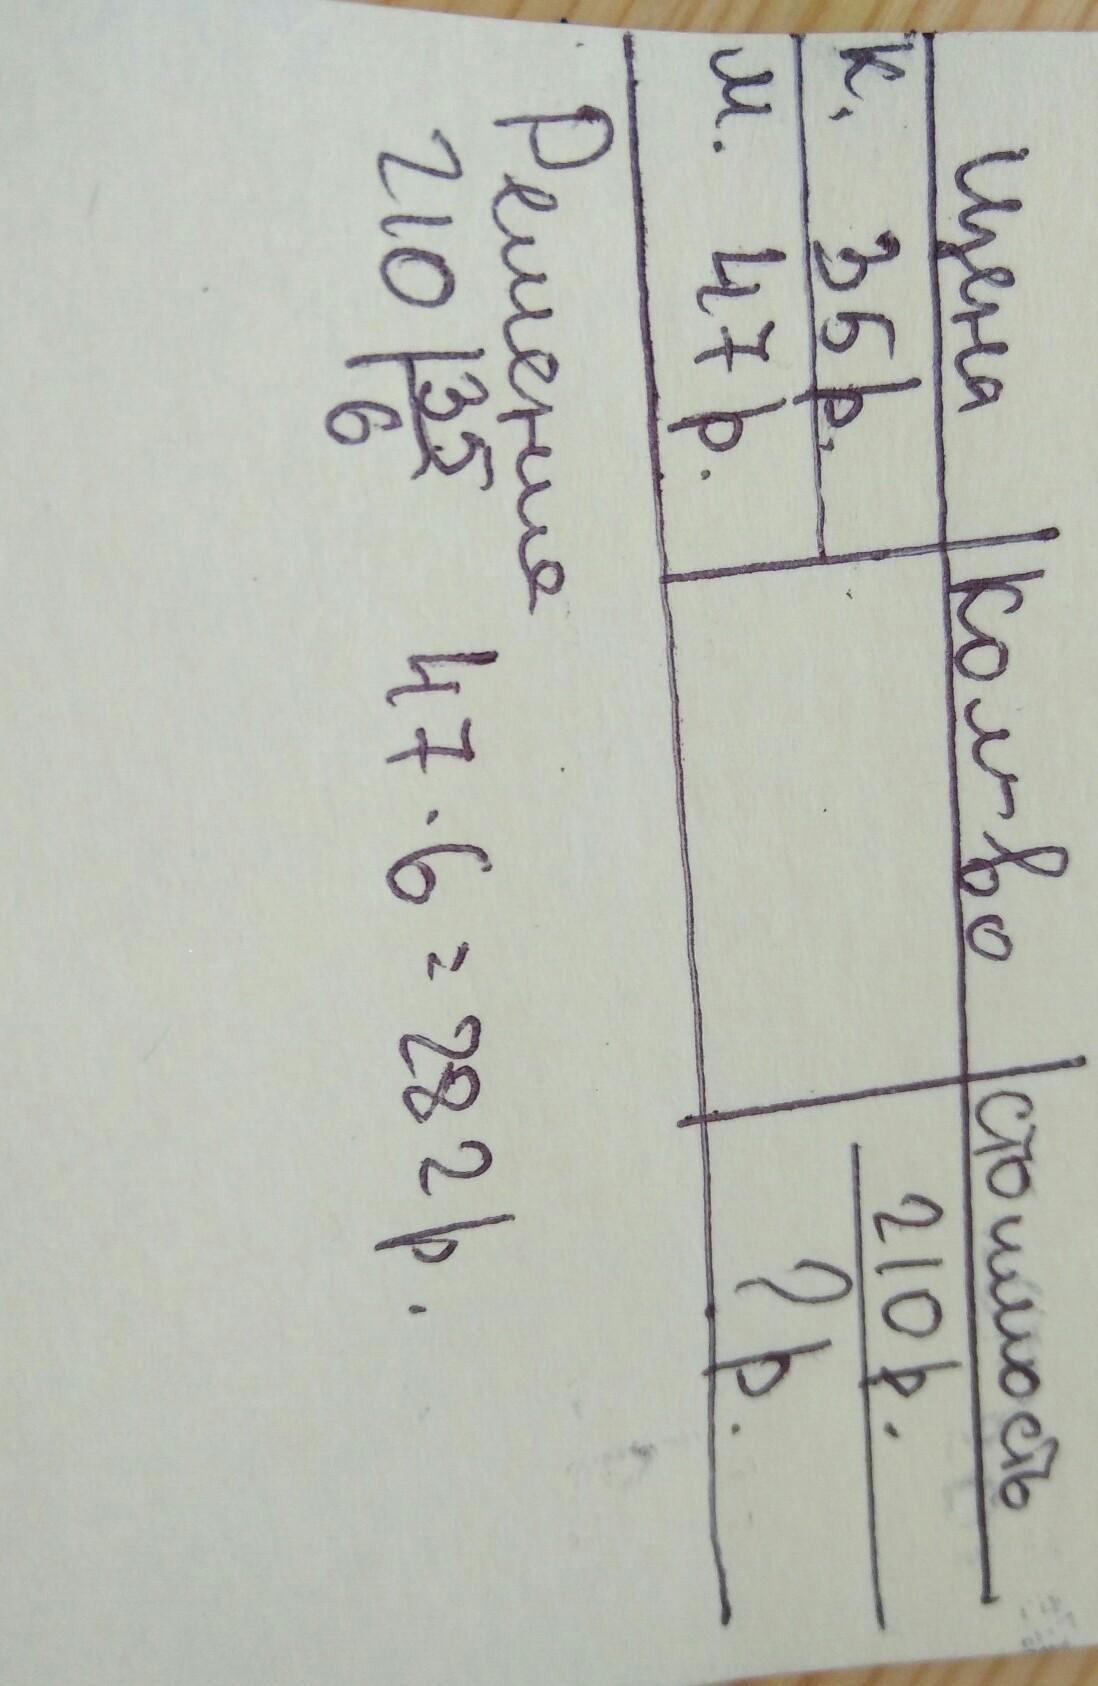 Цена Кол-во стоимость
к. 35р. 210р.
м. 47р. ?р.
Решение
210 35 47·6=282р.
6